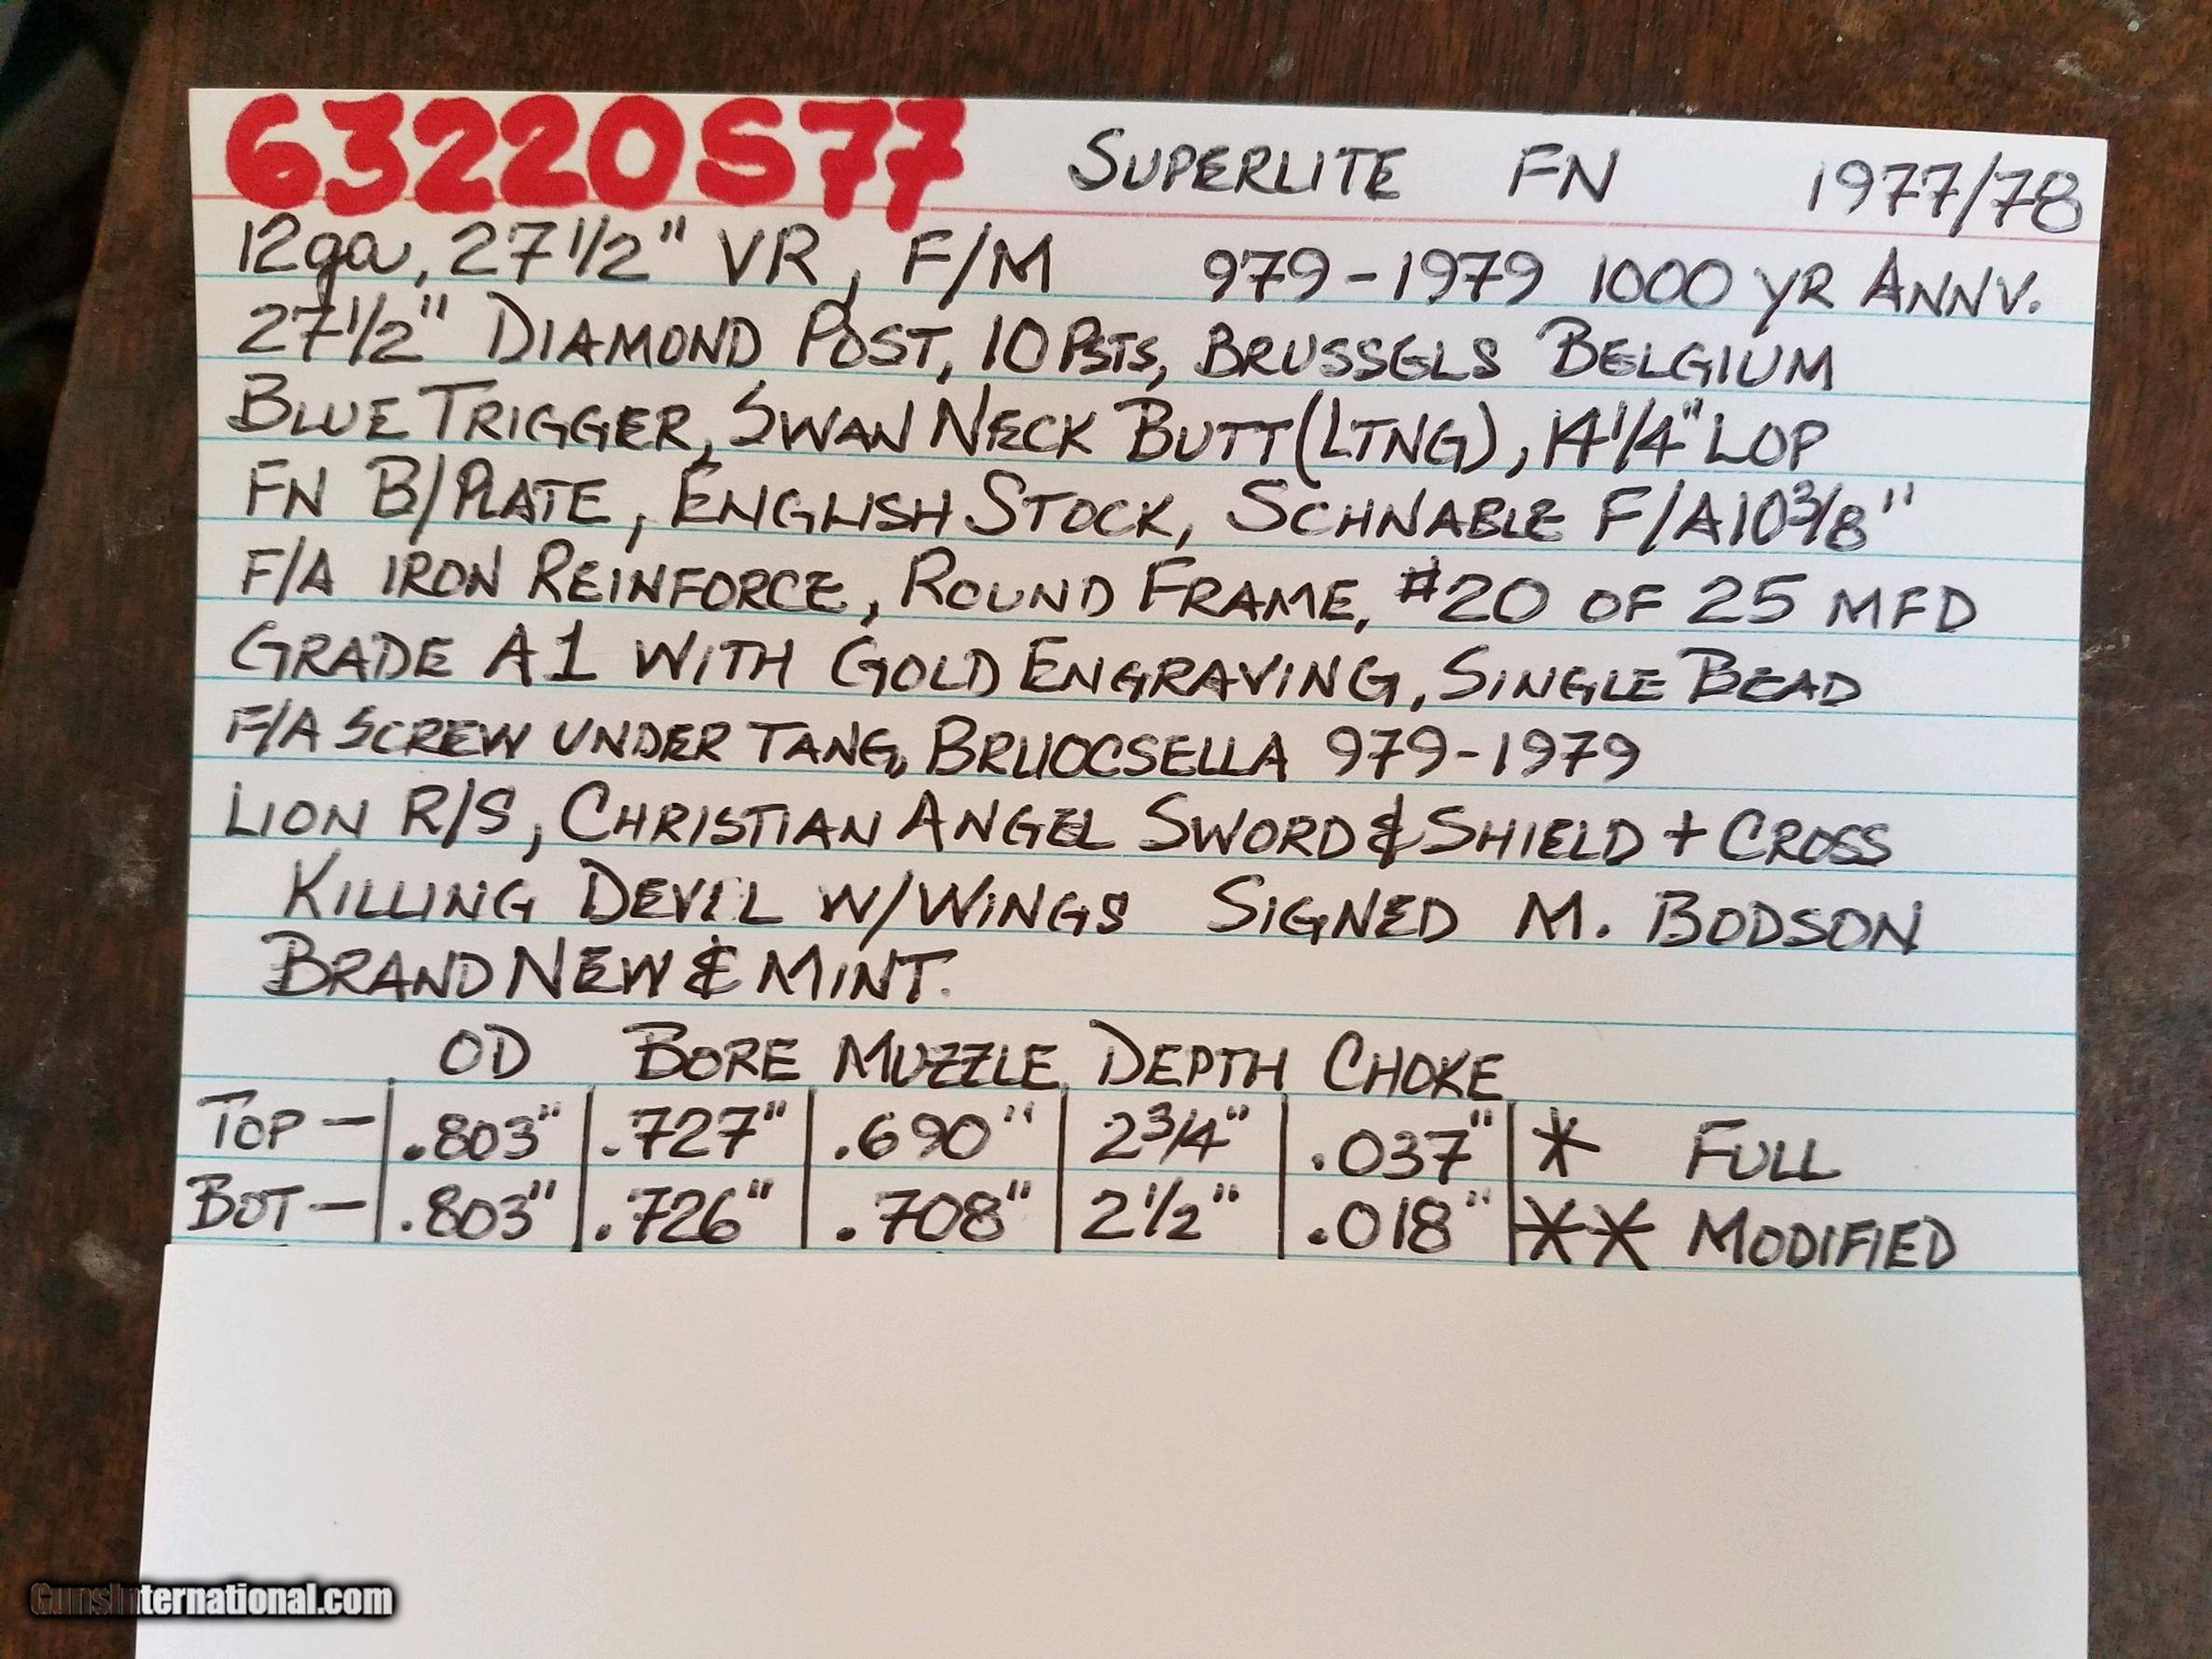 63220S77 SUPERLITE FN 1977/78
12ga, 27 1/2" VR, F/M 979-1979 1000 YR ANNV.
27 1/2" DIAMOND POST, 10 PSTS, BRUSSELS BELGIUM
BLUE TRIGGER, SWAN NECK BUTT (LTNG), 14 1/4" LOP
FN B/PLATE, ENGLISH STOCK, SCHNABLE F/A 10 3/8"
F/A IRON REINFORCE, ROUND FRAME, #20 OF 25 MFD
GRADE A1 WITH GOLD ENGRAVING, SINGLE BEAD
F/A SCREW UNDER TANG, BRUOCSELLA 979-1979
LION R/S, CHRISTIAN ANGEL SWORD & SHIELD + CROSS
KILLING DEVIL W/WINGS SIGNED M. BODSON
BRAND NEW & MINT.
OD BORE MUZZLE DEPTH CHOKE
TOP - .803" .727" .690" 2 3/4" .037" * FULL
BOT - .803" .726" .708" 2 1/2" .018" ** MODIFIED
GunsInternational.com